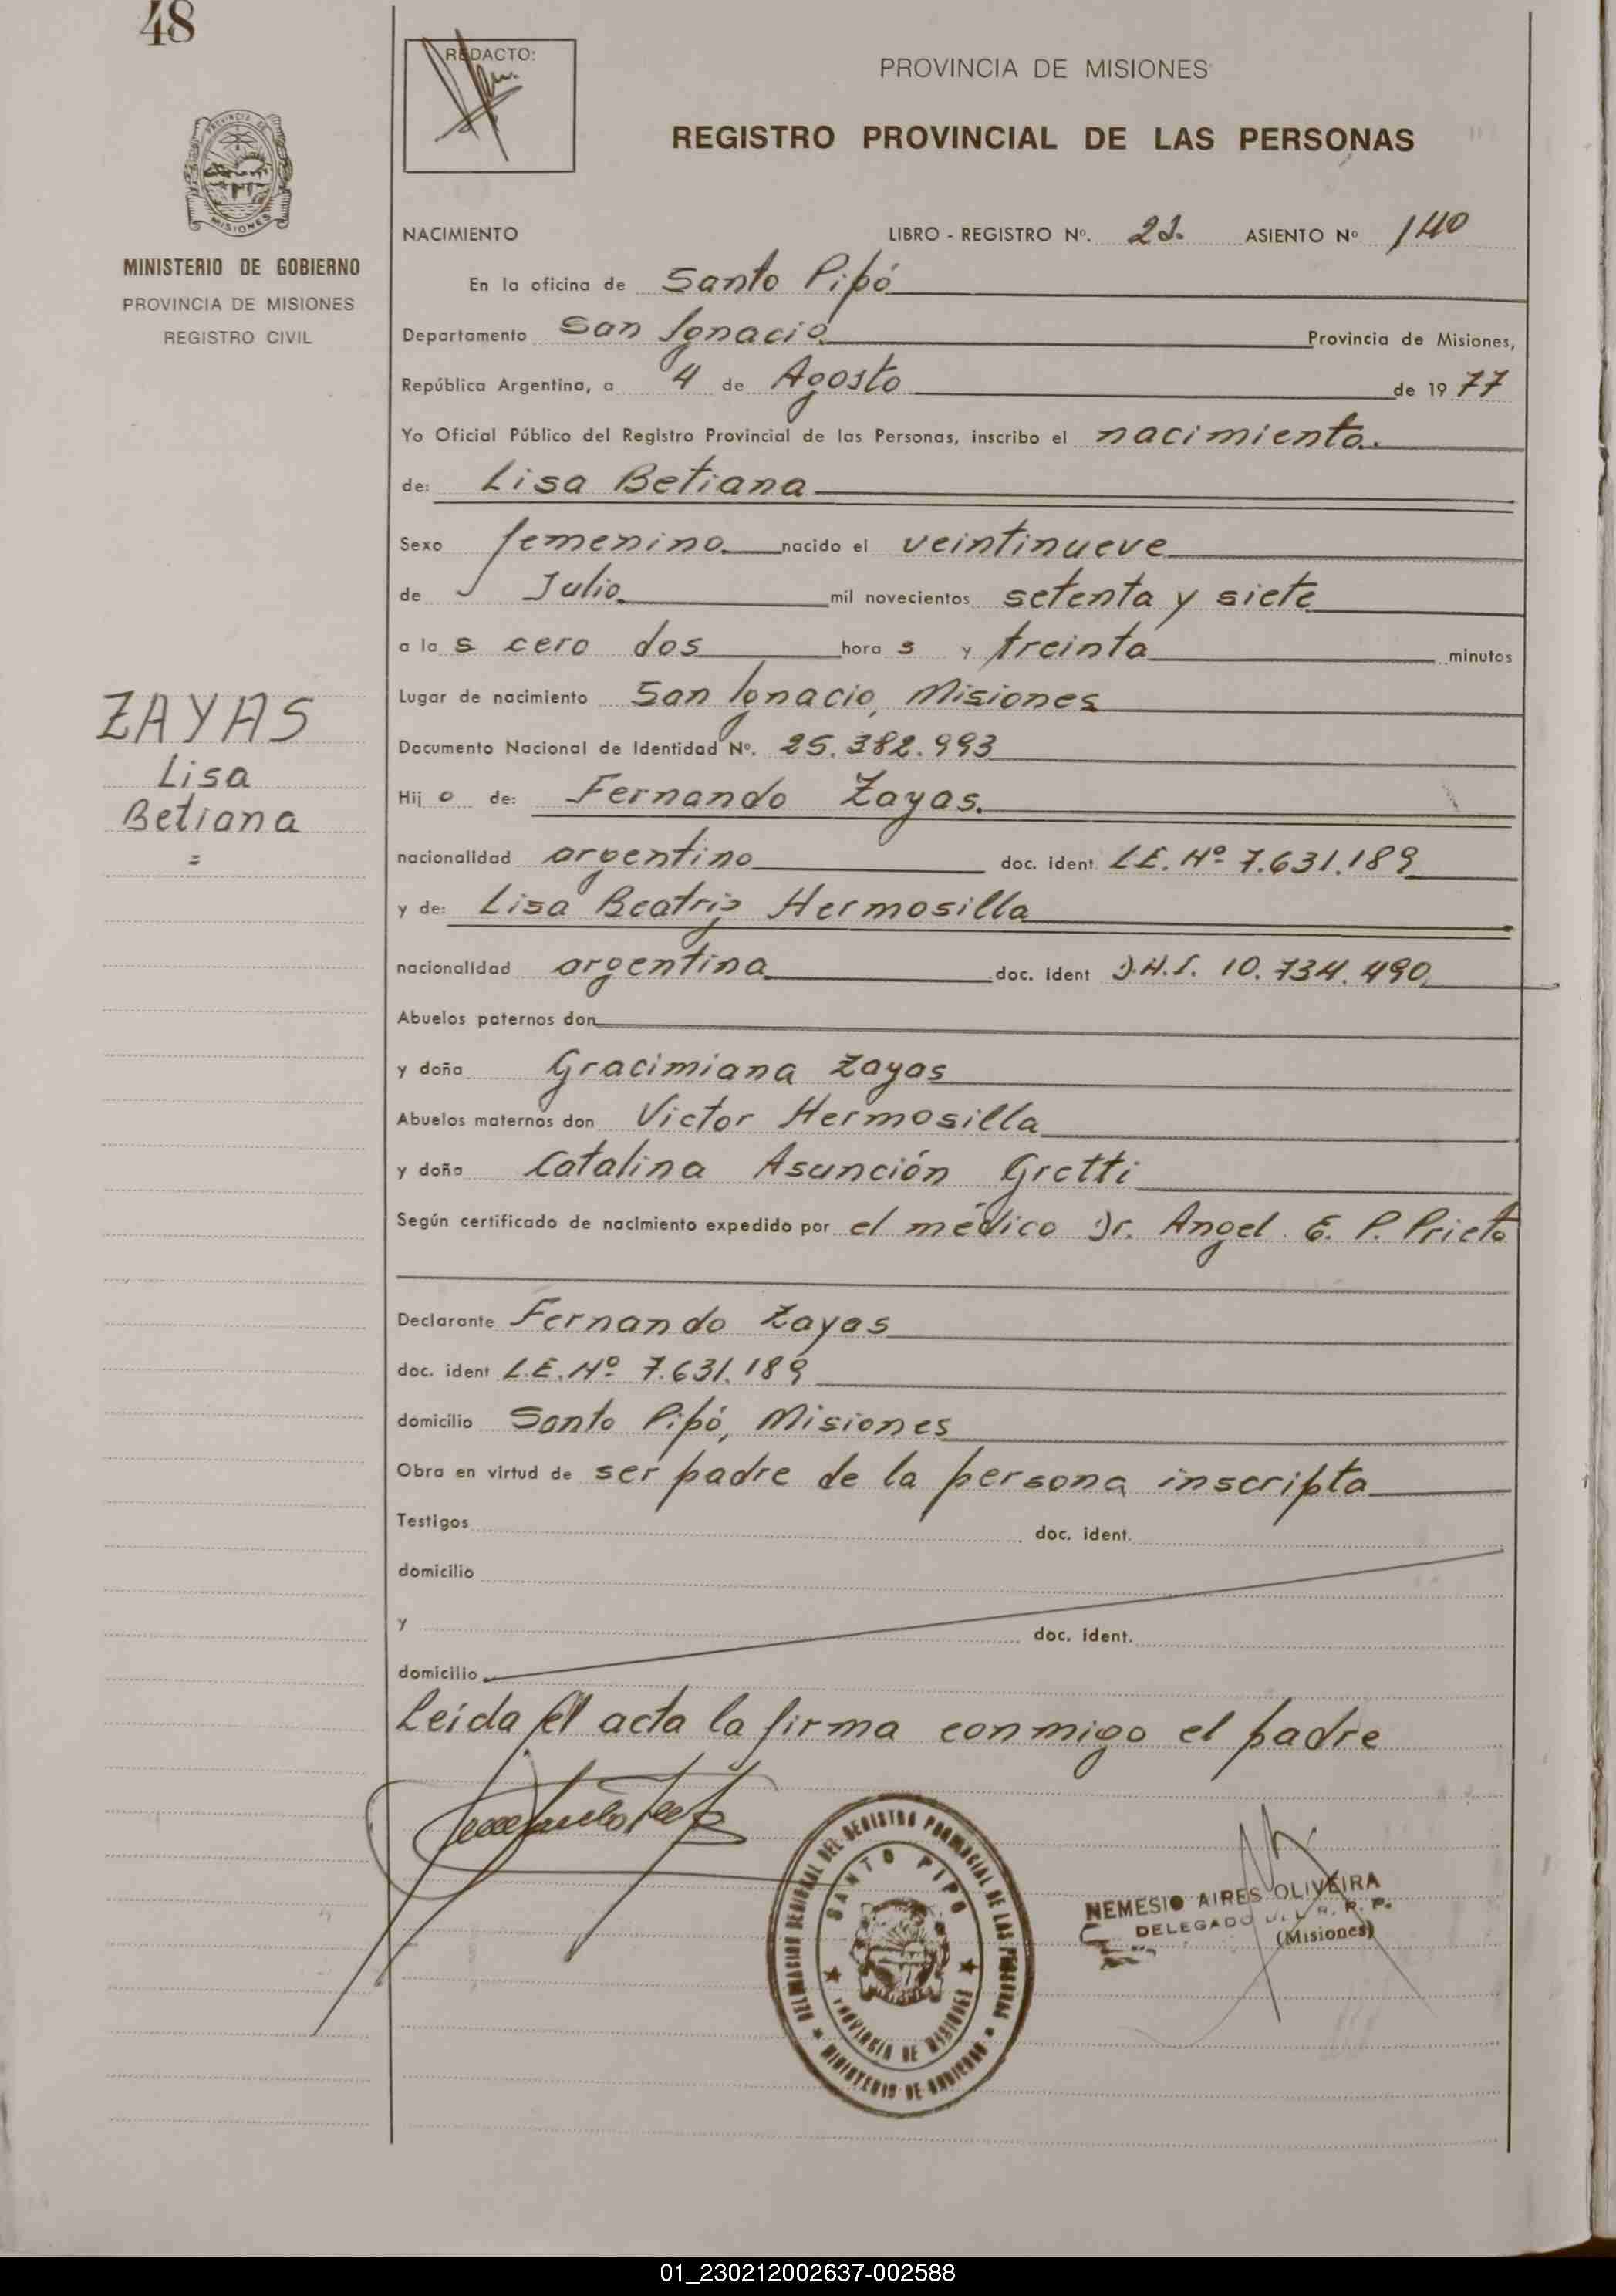 48
REDACTO:
PROVINCIA DE MISIONES
REGISTRO PROVINCIAL DE LAS PERSONAS
PROVINCIA DE
MISIONES
MINISTERIO DE GOBIERNO
PROVINCIA DE MISIONES
REGISTRO CIVIL
NACIMIENTO LIBRO - REGISTRO Nº. 22. ASIENTO Nº 140
En la oficina de Santo Pipó
Departamento San Ignacio. Provincia de Misiones,
República Argentina, a 4 de Agosto de 1977
Yo Oficial Público del Registro Provincial de las Personas, inscribo el nacimiento.
de: Lisa Betiana
Sexo femenino nacido el veintinueve
de Julio mil novecientos setenta y siete
a las cero dos horas y treinta minutos
Lugar de nacimiento San Ignacio, Misiones
Documento Nacional de Identidad Nº. 25.382.993
ZAYAS
Lisa
Betiana
=
Hijo de: Fernando Zayas.
nacionalidad argentino doc. ident L.E. Nº 7.631.189
y de: Lisa Beatriz Hermosilla
nacionalidad argentina doc. ident D.N.I. 10.734.490
Abuelos paternos don
y doña Gracimiana Zayas
Abuelos maternos don Victor Hermosilla
y doña Catalina Asunción Gretti
Según certificado de nacimiento expedido por el médico Dr. Angel E. P. Prieto
Declarante Fernando Zayas
doc. ident L.E. Nº 7.631.189
domicilio Santo Pipó, Misiones
Obra en virtud de ser padre de la persona inscripta
Testigos doc. ident.
domicilio
y doc. ident.
domicilio
Leída el acta la firma conmigo el padre
DEL REGISTRO PROVINCIAL DE LAS PERSONAS
SANTO PIPO
PROVINCIA DE MISIONES
MINISTERIO DE GOBIERNO
NEMESIO AIRES OLIVEIRA
DELEGADO DEL R. P. P.
(Misiones)
01_230212002637-002588